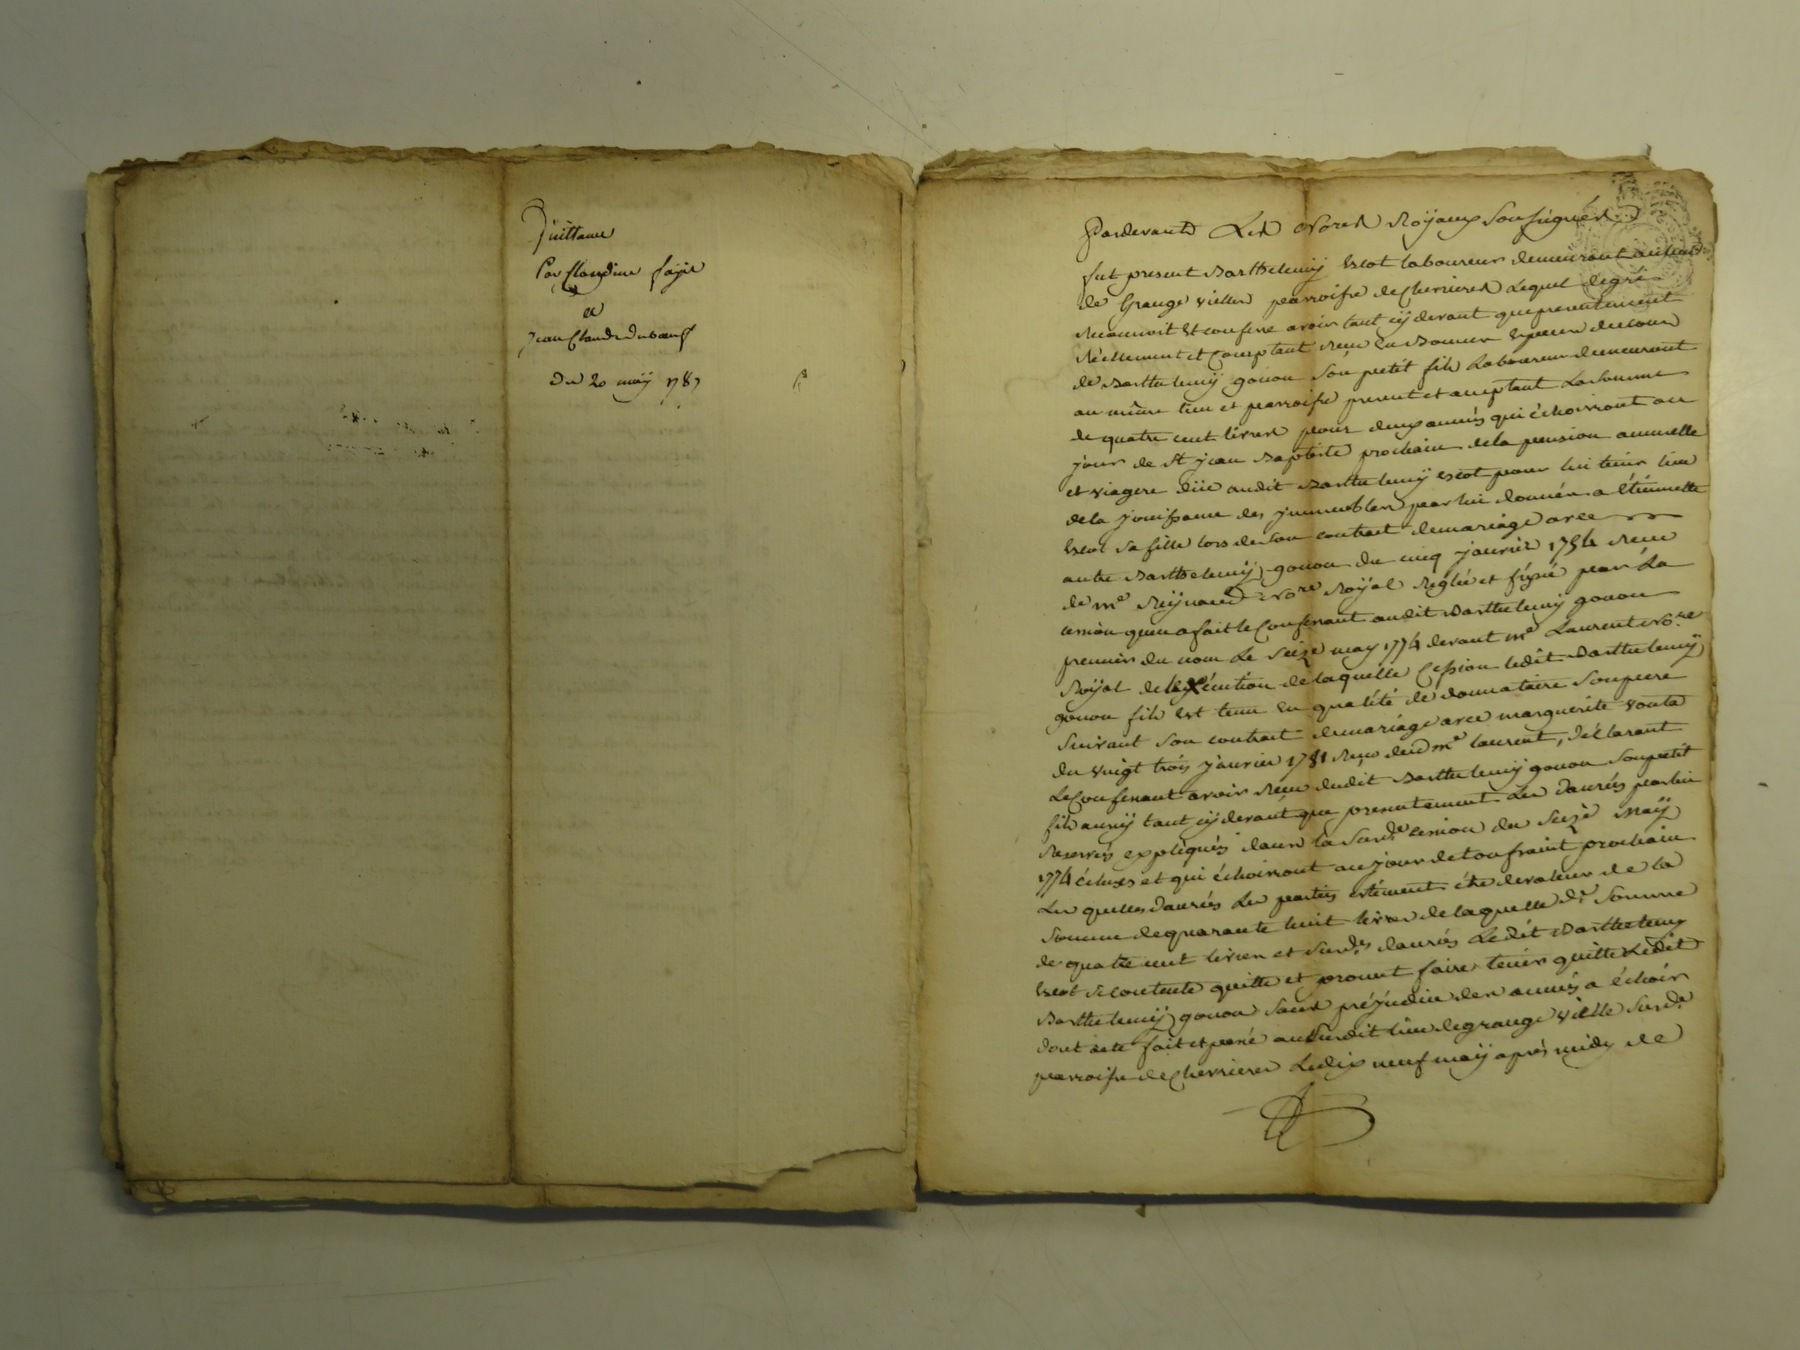 Quittance
Par Claudine fayie
et
Jean Claude Duboeuf
Du 20 may 1787
Pardevants Les Nores Royaux Soussignés
fut present Barthelemy Escot laboureur demeurant au lieu
de Grange vielles parroisse de Cherrieres Lequel degré
reconnoit et confesse avoir tant cy devant que presentement
réellement et comptant reçu en bonnes especes du cour
de Barthelemy gonon son petit fils Laboureur demeurant
au même lieu et parroisse present et acceptant La somme
de quatre cent livres pour deux années qui échoirront au
jour de St jean Baptiste prochain de la pension annuelle
et viagere düe audit Barthelemy Escot pour lui tenir lieu
de la jouissance des immeubles par lui donnés a étiennette
Escot sa fille lors de son contrat de mariage avec
autre Barthelemy gonon du cinq janvier 1754 reçu
de me Reynaud Nore Royal reglée et fixée par La
cession qu'en a fait le Confessant audit Barthelemy gonon
premier du nom Le Seize may 1774 devant me Laurent Nore
Royal de l'éxécution de laquelle Cession ledit Barthelemy
gonon fils est tenu en qualité de donnataire Son pere
suivant son contrat de mariage avec marguerite
du vingt trois janvier 1781 reçu dud me laurent, déclarant
Le Confessant avoir reçu dudit Barthelemy gonon son petit
fils aussy tant cy devant que presentement Les danrés par lui
reservés expliqués dans la susde cession du Seize may
1774 échues et qui échoirront au jour de toussaint prochain
Les quelles danrés Les parties estiment être de valeur de la
somme de quarante huit livres de laquelle de Somme
de quatre cent livres et susds danrés Ledit Barthelemy
Escot se contente quitte et promet faire tenir quitte Ledit
Barthelemy gonon sans préjudice des années a échoir
dont acte fait et passé au susdit lieu de grange vielle susde
parroisse de Cherrieres Le dix neuf may après midy de